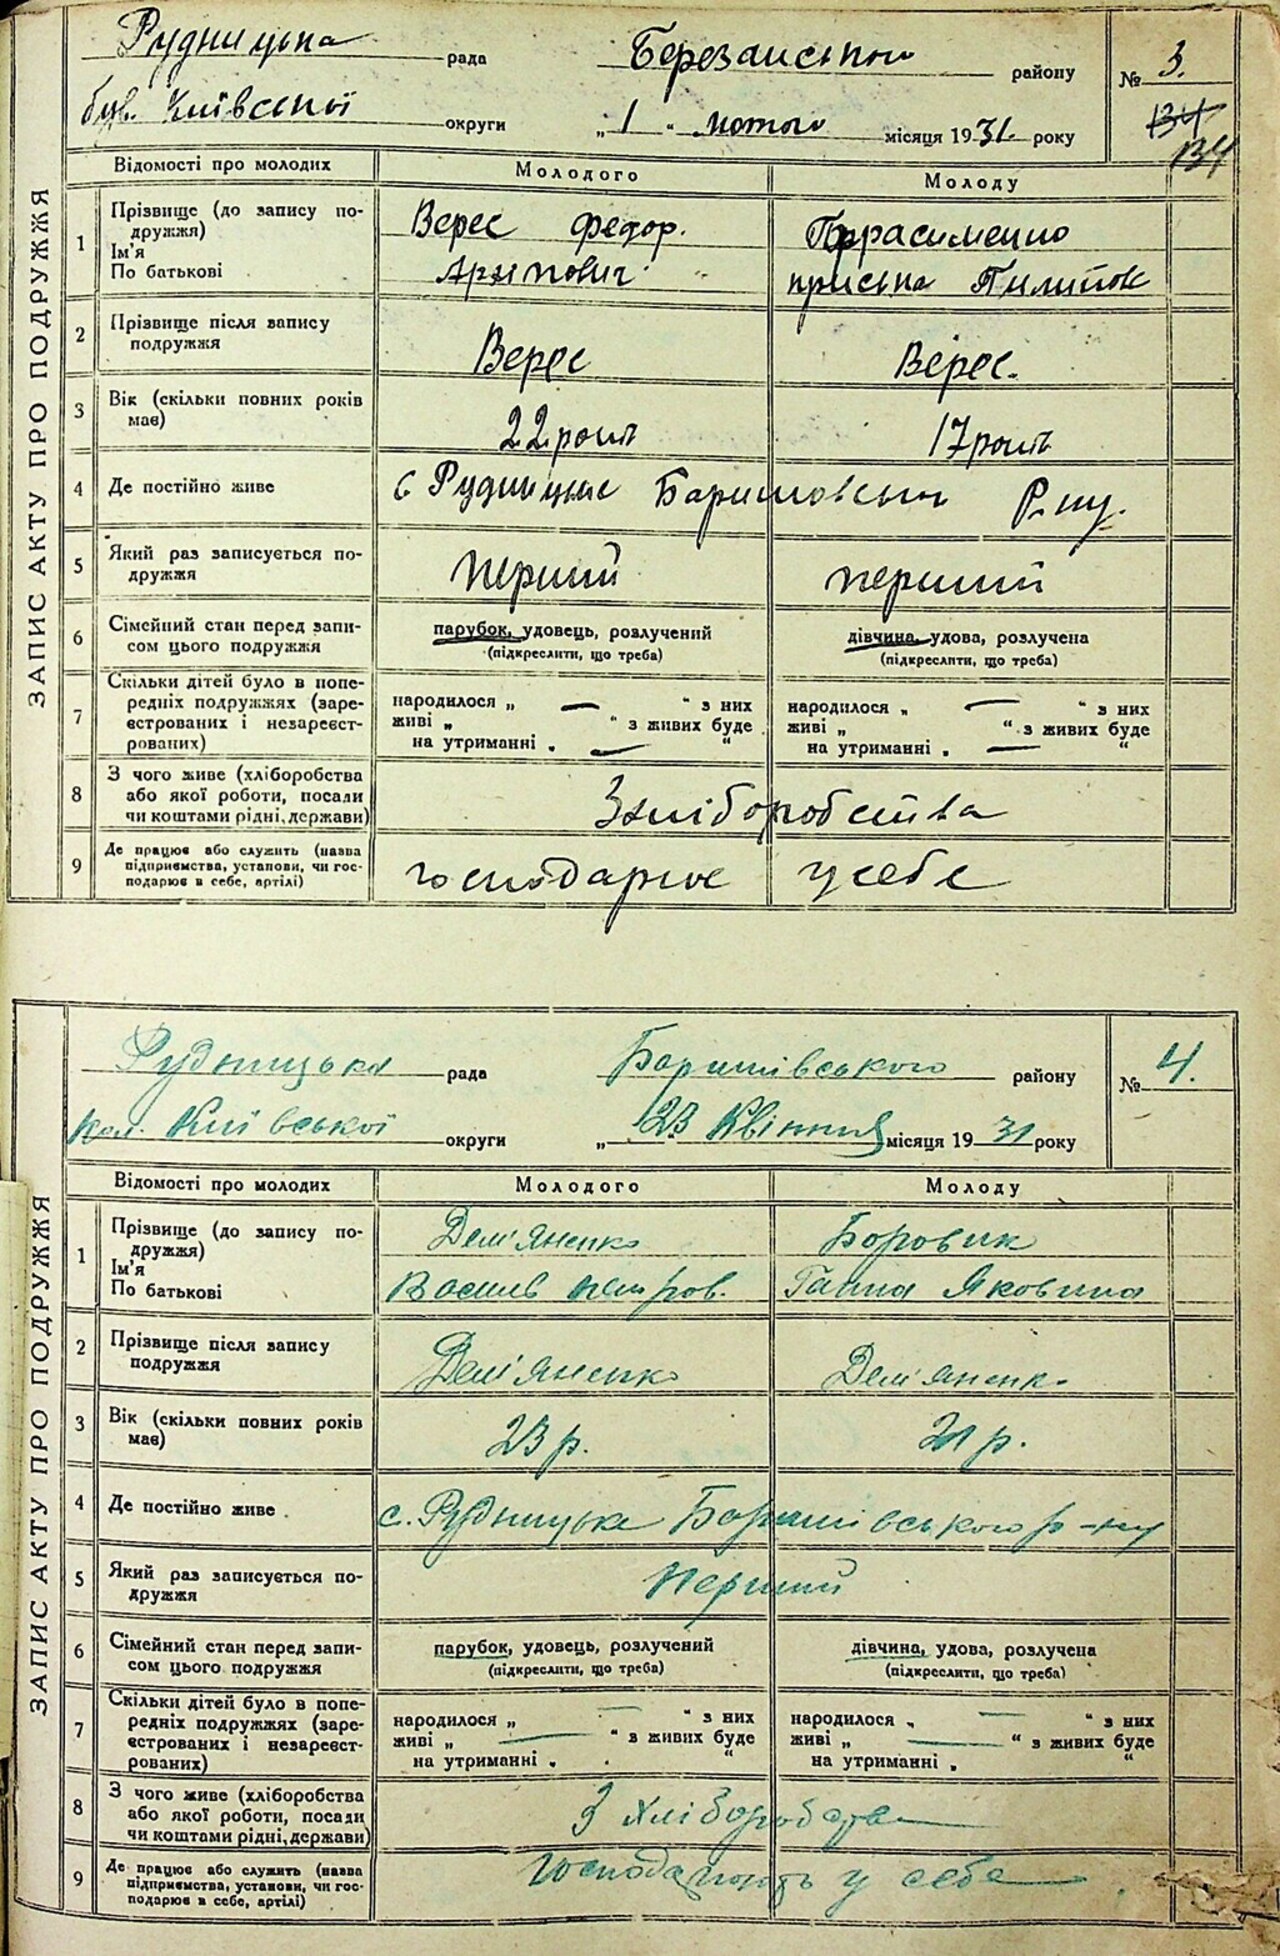 Рудницька рада Березанського району № 3.
був. Київської округи „ 1 “ лютого місяця 1931. року 134
134
Відомості про молодих Молодого Молоду
ЗАПИС АКТУ ПРО ПОДРУЖЖЯ
1 Прізвище (до запису по-
дружжя)
Ім'я
По батькові
Верес Федор.
Архипович
Герасименко
Приська Пилипов
2 Прізвище після запису
подружжя
Верес Верес.
3 Вік (скільки повних років
має)
22 роки 17 років
4 Де постійно живе с Рудницьке Баришовськи Р.ну.
5 Який раз записується по-
дружжя
перший перший
6 Сімейний стан перед запи-
сом цього подружжя
парубок, удовець, розлучений
(підкреслити, що треба)
дівчина, удова, розлучена
(підкреслити, що треба)
7 Скільки дітей було в попе-
редніх подружжях (заре-
єстрованих і незареєст-
рованих)
народилося „ — “ з них
живі „ “ з живих буде
на утриманні „ — “
народилося „ — “ з них
живі „ “ з живих буде
на утриманні „ — “
8 З чого живе (хліборобства
або якої роботи, посади
чи коштами рідні, держави)
З хліборобства
9 Де працює або служить (назва
підприємства, установи, чи гос-
подарює в себе, артілі)
господарює у себе
Рудницька рада Баришівського району № 4.
кол. Київської округи „ 23 Квітня місяця 1931 року
Відомості про молодих Молодого Молоду
ЗАПИС АКТУ ПРО ПОДРУЖЖЯ
1 Прізвище (до запису по-
дружжя)
Ім'я
По батькові
Дем'яненко
Василь Петров.
Боровик
Ганна Яковина
2 Прізвище після запису
подружжя
Дем'яненко Дем'яненко
3 Вік (скільки повних років
має)
23 р. 21 р.
4 Де постійно живе с. Рудницьке Баришівського р-ну
5 Який раз записується по-
дружжя
Перший
6 Сімейний стан перед запи-
сом цього подружжя
парубок, удовець, розлучений
(підкреслити, що треба)
дівчина, удова, розлучена
(підкреслити, що треба)
7 Скільки дітей було в попе-
редніх подружжях (заре-
єстрованих і незареєст-
рованих)
народилося „ — “ з них
живі „ — “ з живих буде
на утриманні „ “
народилося „ — “ з них
живі „ — “ з живих буде
на утриманні „ “
8 З чого живе (хліборобства
або якої роботи, посади
чи коштами рідні, держави)
З хліборобства
9 Де працює або служить (назва
підприємства, установи, чи гос-
подарює в себе, артілі)
Господарюють у себе